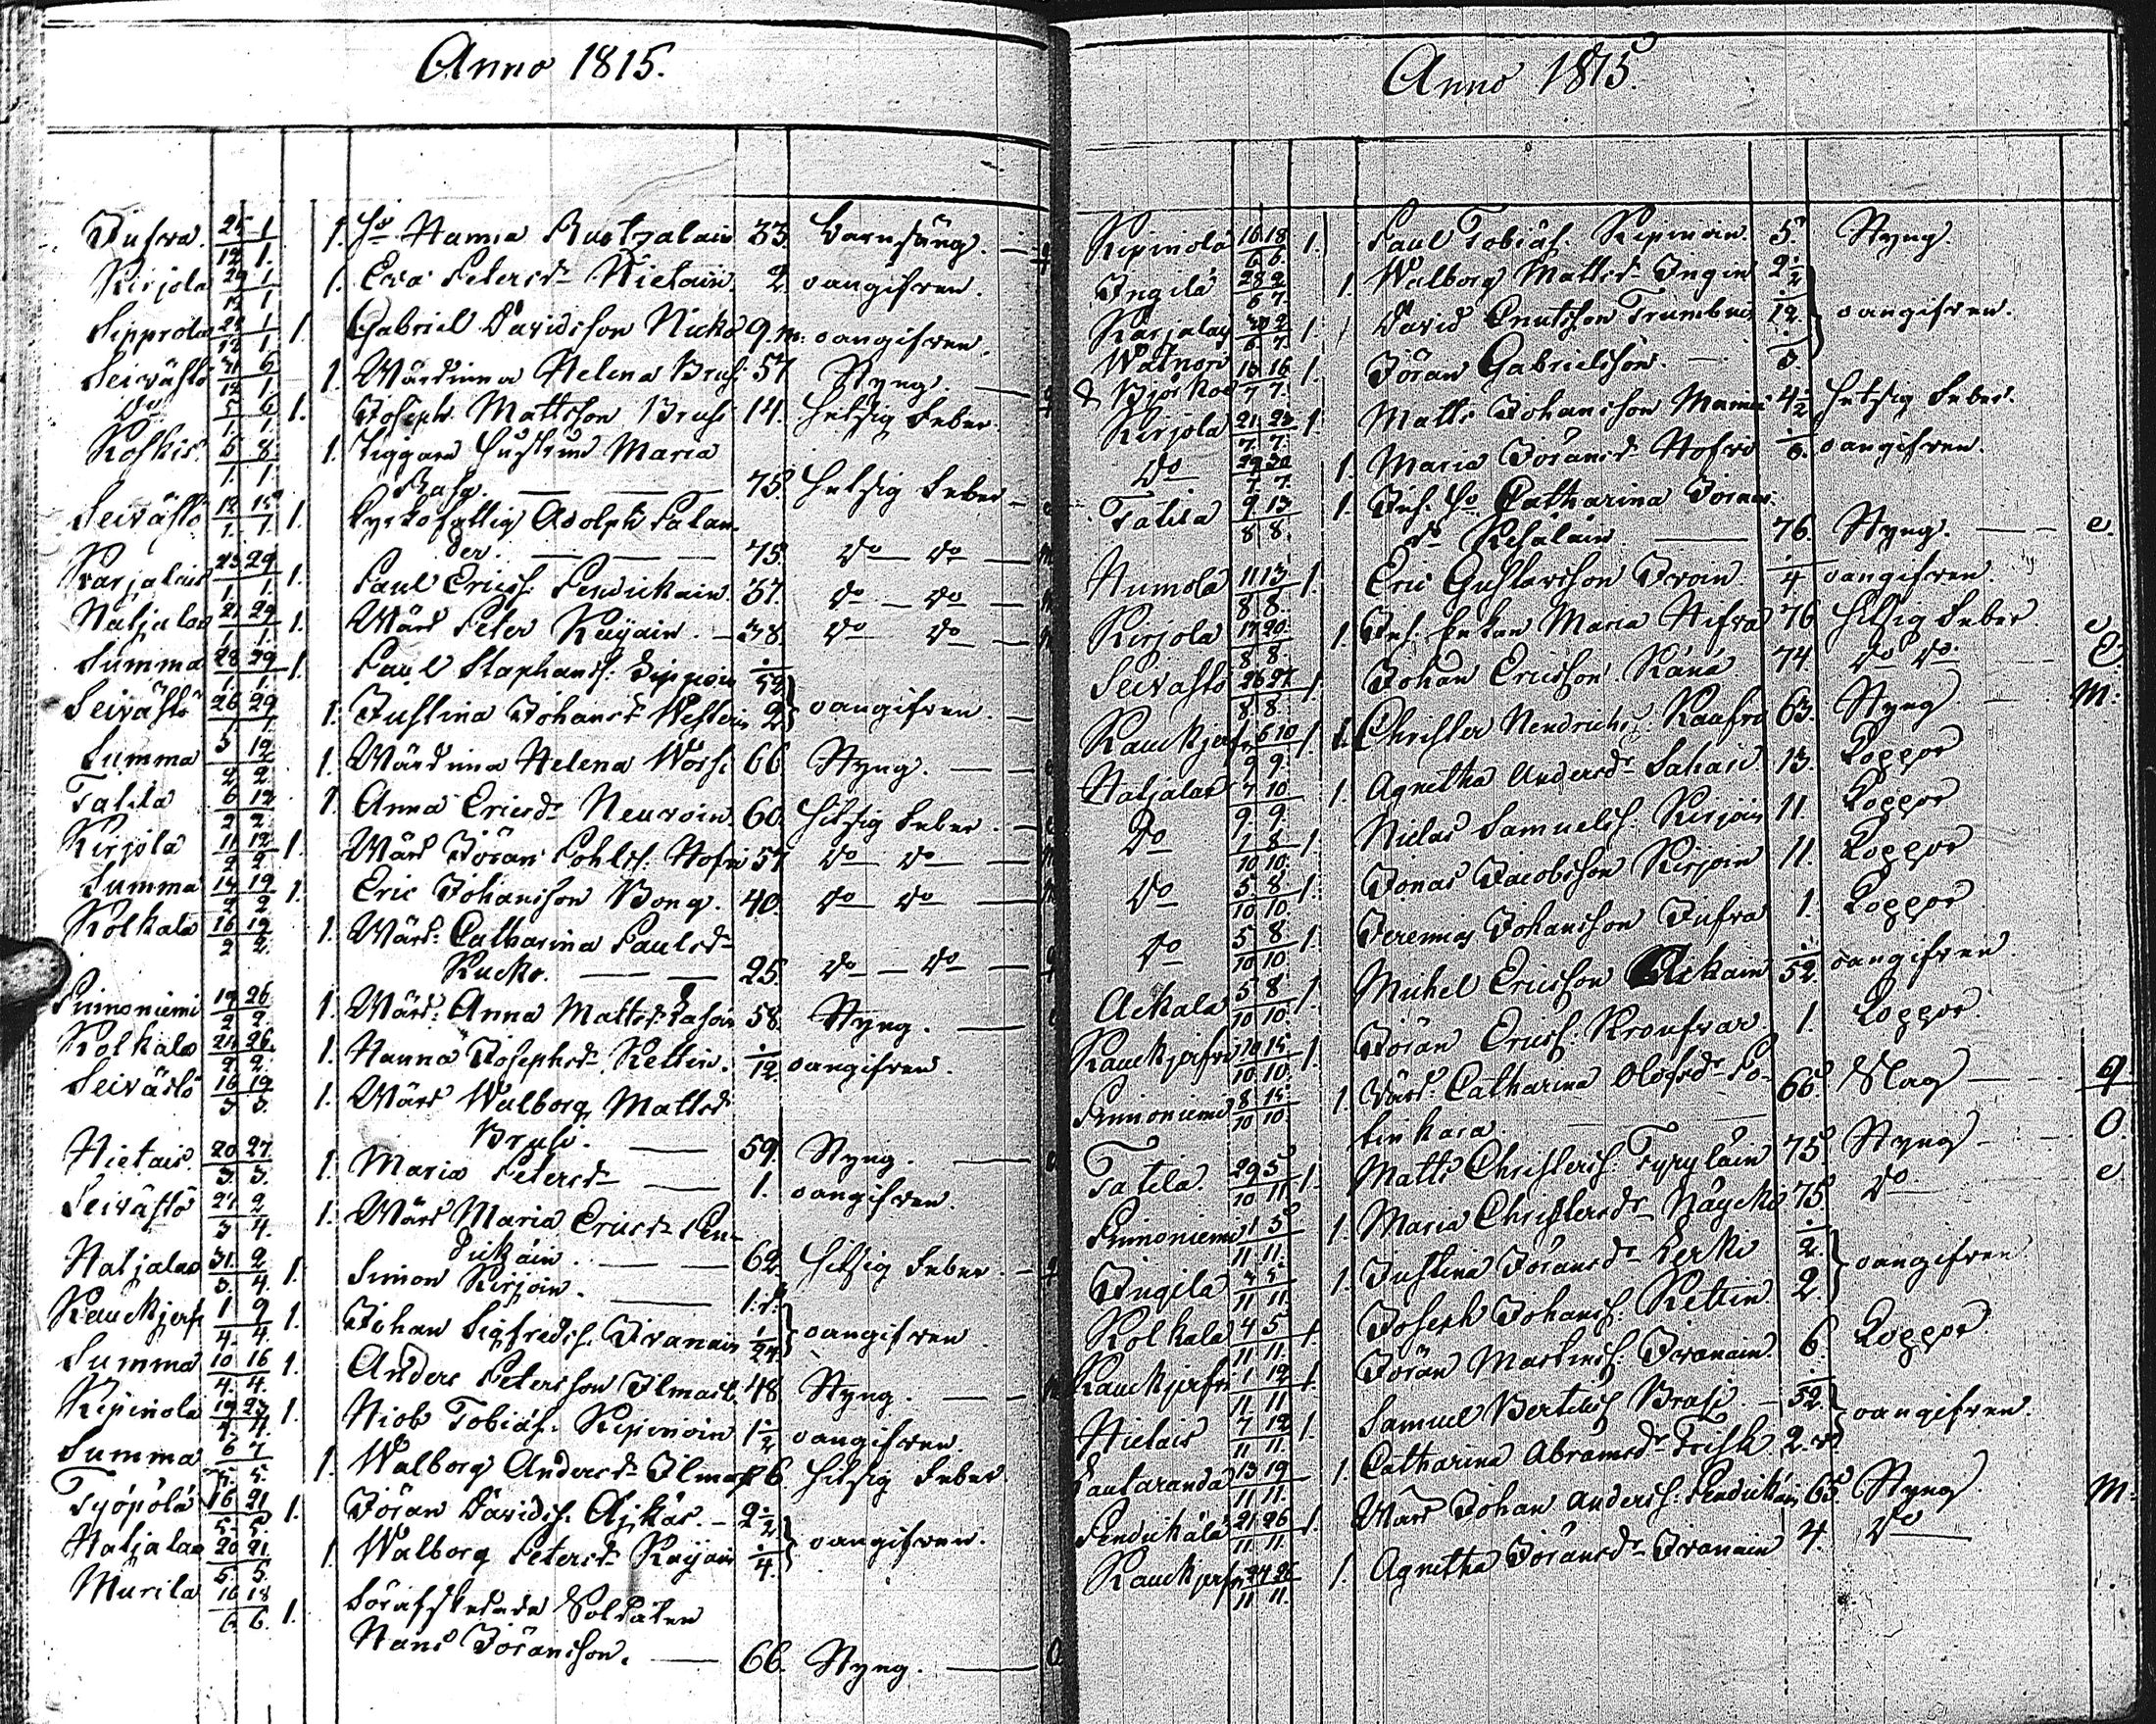 Anno 1815.
Jufwa. 25/12 1/1 1. Ho Hanna Rustzalain 33. barnsäng.
Kirjola 29/12 1/1 1. Eva Petersdr Hietain. 2. oangifven.
Sipprola 29/12 1/1 1. Gabriel Davidsson Kicko 9 m: oangifven.
Seivästö 31/12 6/1 1. Wärdinna Helena Brusi 57 Styng.
Do 5/1 6/1 1. Joseph Mattsson Brusi 14. Hetsig Feber.
Koskis. 6/1 8/1 1. Tiggare Hustrun Maria
75. Hetsig Feber
Seivästö 12/1 15/1 1. Kyrkofattig Adolph Palan-
der. 75. Do Do
Karjalais 23/1 29/1 1. Paul Ericss: Pendickain. 37. Do Do
Hatjalax 21/1 29/1 1. Wärd Peter Kayain. 38. Do Do
Summa 28/1 29/1 1. Paul Staphanss: Sippoin ./52
Seivästö 26/1 29/1 1. Justina Johansdr Westerin 2 oangifven.
Summa 5/2 12/2 1. Wärdinna Helena Worsi 66 Styng.
Tatila 6/2 12/2 1. Anna Ericsdr Neuvoin. 60. Hitsig Feber.
Kirjola 11/2 12/2 1. Wärd Jöran Pohlss: Hofri 57 Do Do
Summa 14/2 19/2 1. Eric Johansson Bong. 40. Do Do
Kolkala 16/2 19/2 1. Wärd: Catharina Paulsdr
Kucko. 25. Do Do
Pinnoniemi 19/2 26/2 1. Wärd: Anna Mattsdr 58. Styng.
Kolkala 21/2 26/2 1. Hanna Josephsdr Kettin. ./12. oangifven.
Seivästö 16/3 19/3 1. Wärd Walborg Mattsdr
Brusi. 59. Styng.
Hietais. 20/3 27/3 1. Maria Petersdr 1. oangifven.
Seivästö 27/3 2/4 1. Wärd Maria Ericsdr Pen-
dickäin. 62. Hitsig Feber.
Hatjalax 31/3 2/4 1. Simon Kirjoin.
Rauckjerf 1/4 9/4 1. Johan Sigfredss: Ivanain oangifven
Summa 10/4 16/4 1. Anders Petersson Ilmast. 48 Styng.
Kipinola 19/4 23/4 1. Hiob Tobiass: Kipinoin 1 1/2 oangifven.
Summa 6/5 7/5 1. Walborg Andersdr Ilmast 6. Hitsig Feber
Työpölä 16/5 21/5 1. Jöran Davidss: Äjkäs. 2 1/2
Hatjalax 20/5 21/5 1. Walborg Petersdr Kayain ./4. oangifven.
Murila 16/6 18/6 1. Förafskedade Soldaten
Hans Jöransson. 66. Styng.
Anno 1815.
Kipinola 16/6 18/6 1. Paul Tobiass. Kipinoin. 5. Styng.
Ingilä 28/6 2/7 1. Walborg Mattsdr Ingin 2 1/2
Karjalais 30/6 2/7 1. David Cnutsson Trumbus ./12. oangifven.
Watnori
& Björkoe 15/7 16/7 1. Jöran Gabrielsson.
Kirjola 21/7 23/7 1. Matts Johansson Mamia 4 1/2 Hetsig Feber.
Do 29/7 30/7 1. Maria Jöransdr Hofri oangifven.
Tatila 9/8 13/8 1. Inh. Ho Catharina Jörans-
dr Kesäläin 76. Styng. e.
Humola 11/8 13/8 1. Eric Gustavsson Ivoin ./4 oangifven.
Kirjola 17/8 20/8 1. Inh. Enkan Maria Hifwa 76 Hetsig Feber. e
Seivästö 26/8 27/8 1. Johan Ericsson Känä 74 Do Do
Rauckjerf 6/9 10/9 1. Christer Hendrichs: Kaufro 63. Styng. M:
Hatjalax 7/9 10/9 1. Agnetha Andersdr 13. Koppor
Do 1/10 8/10 1. Niclas Samuelss. Kirjoin 11. Koppor
Do 5/10 8/10 1. Jonas Jacobsson Kirjoin 11. Koppor
Do 5/10 8/10 1. Jeremias Johansson Jufwa 1. Koppor
Ackala 5/10 8/10 1. Michel Ericsson Ackain ./52. oangifven.
Rauckjerfvi 10/10 15/10 1. Jöran Ericss: Kroufvar 1. Koppor.
Pinnoniemi 8/10 15/10 1. Wärd. Catharina Olofsdr Po-
tinkara. 66. Slag
Tatila. 29/10 5/11 1. Matts Christerss: Tyryläin 75. Styng
Pinnoniemi 1/11 5/11 1. Maria Christersdr Näycki 75. Do e
Ingila 3/11 5/11 1. Justina Jöransdr Lerki ./2.
Kolkala 4/11 5/11 1. Joseph Johanss: Kettin 2. oangifven
Rauckjerfvi 1/11 12/11 1. Jöran Martinss: Ivanain. 6. Koppor.
Hietais 7/11 12/11 1. Samuel Bertilss Brusi. ./52.
Lautaranda 13/11 19/11 1. Catharina Abramsdr Frisk 2. oangifven.
Pendickälä 21/11 26/11 1. Wärd Johan Anderss: Pendickäin 65. Styng. M:
Rauckjerf 24/11 26/11 1. Agnetha Jöransdr Ivanain 4. Do